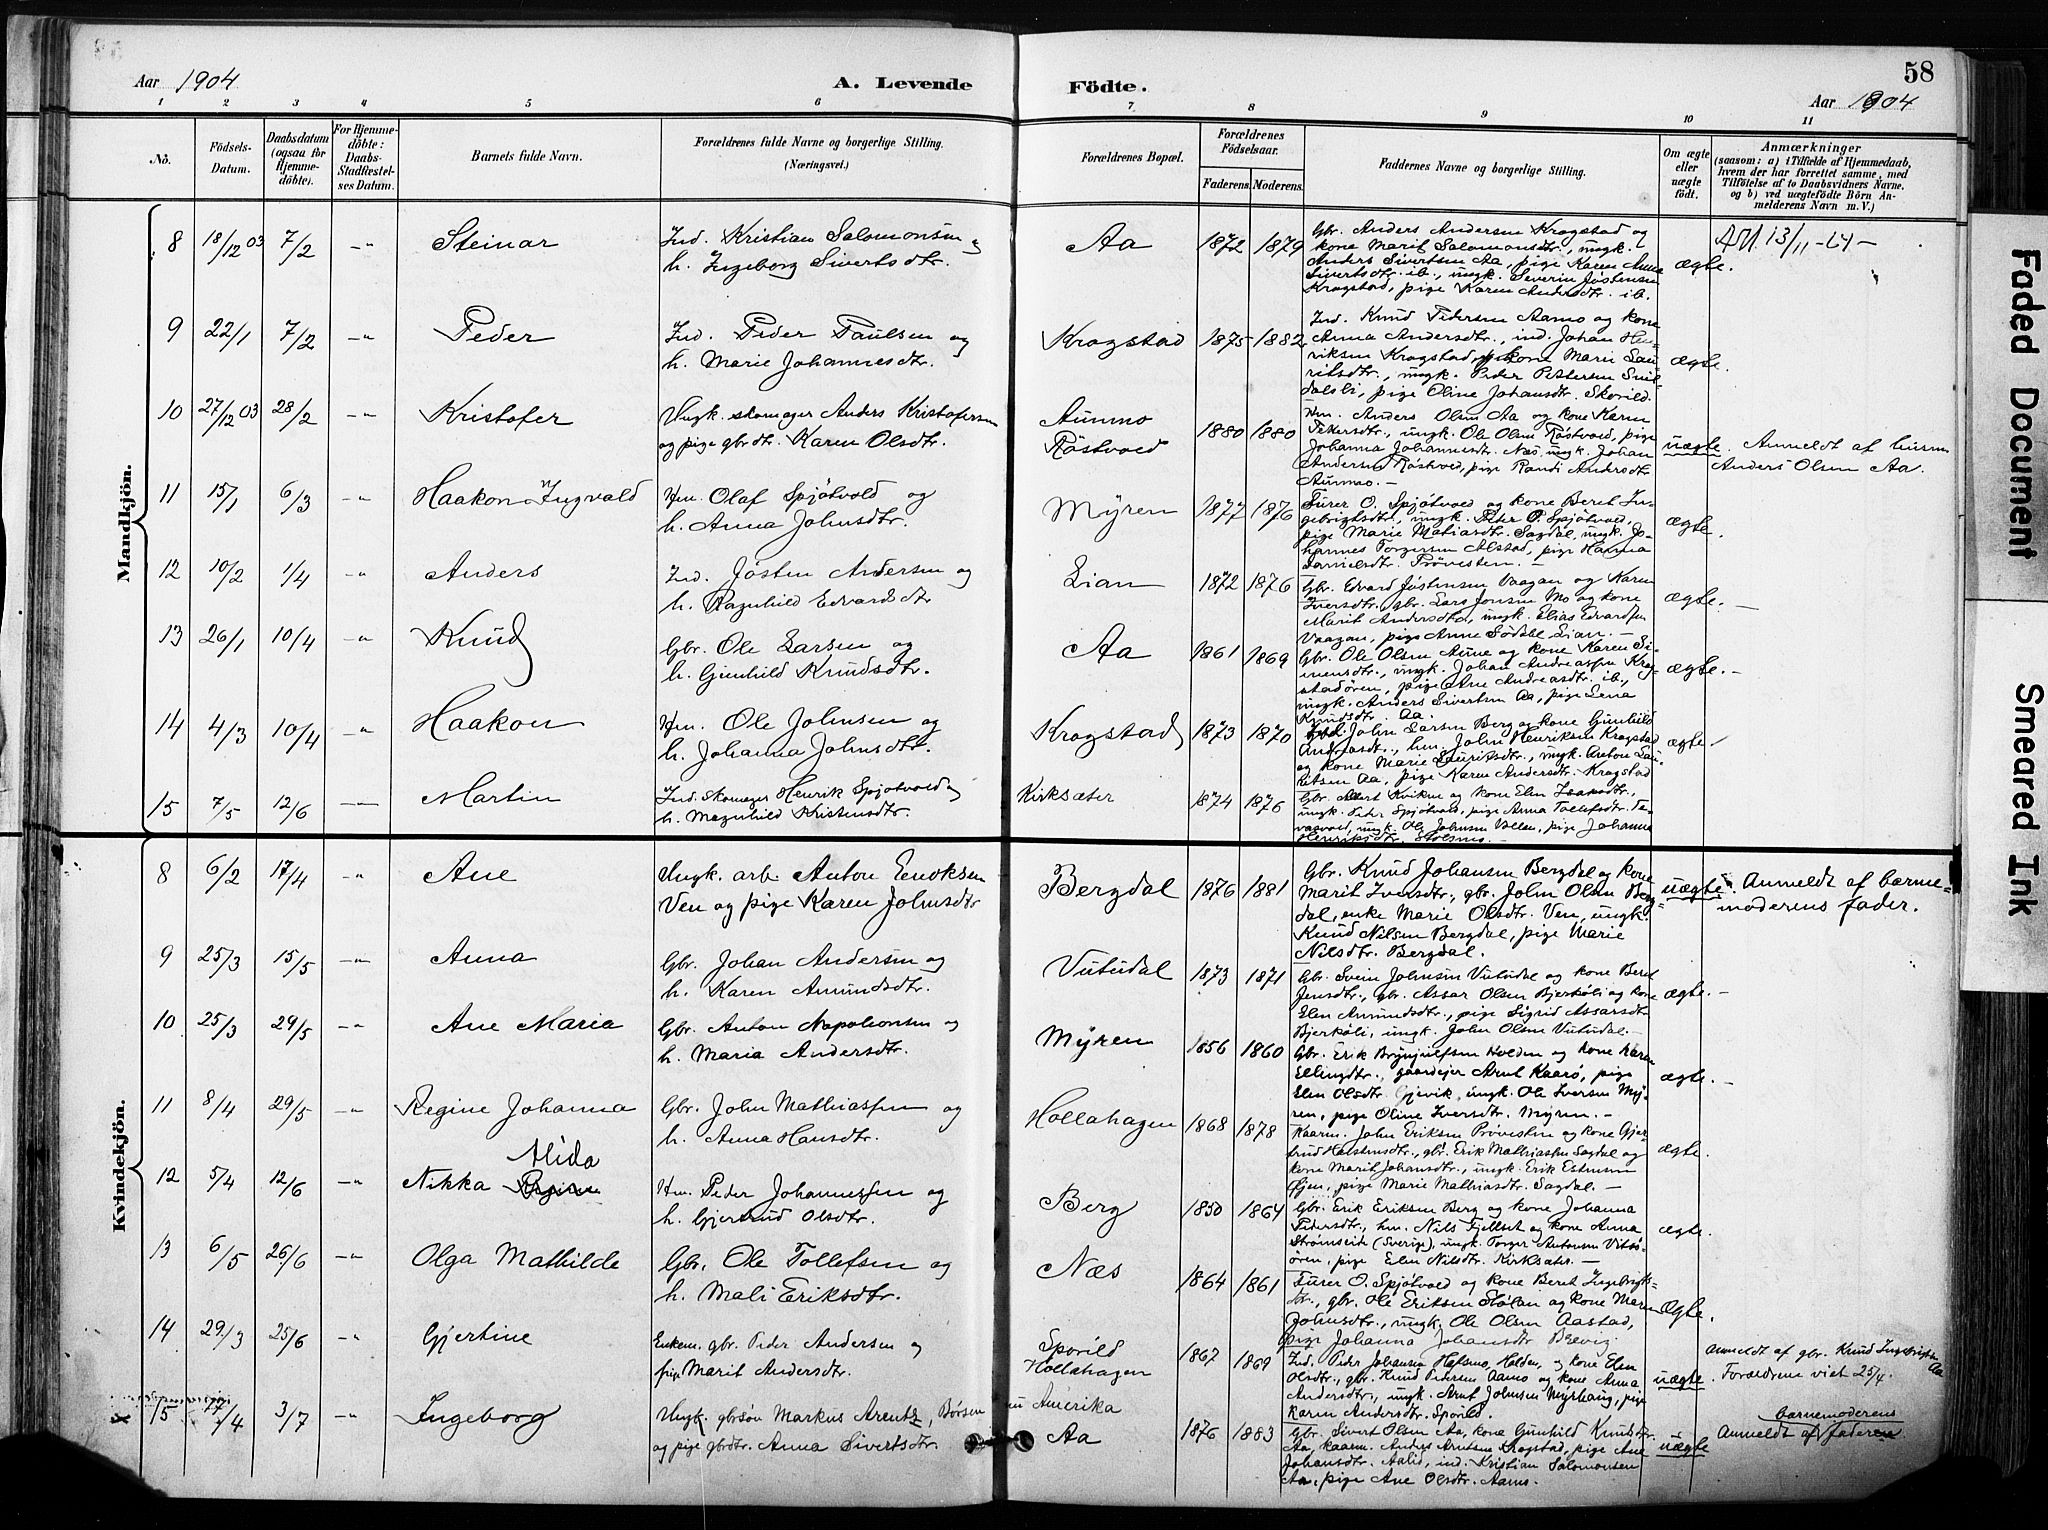 58
Aar 1904
A. Levende
Födte.
Aar 1904
1 2 3 4 5 6 7 8 9 10 11
No.
Födsels-Datum.
Daabsdatum (ogsaa for Hjemme-döbte).
For Hjemme-döbte: Daabs-Stadfæstel-ses Datum.
Barnets fulde Navn.
Forældrenes fulde Navne og borgerlige Stilling.
(Næringsvei.)
Forældrenes Bopæl.
Forældrenes Födselsaar.
Faderens. Moderens.
Faddernes Navne og borgerlige Stilling.
Om ægte eller uægte födt.
Anmærkninger
(saasom: a) i Tilfælde af Hjemmedaab,
hvem der har forrettet samme, med
Tilföielse af to Daabsvidners Navne,
og b) ved uægtefödte Börn An-
melderens Navn m. V.)
Mandkjön.
8 18/12 03 7/2 -"- Steinar
Ind. Kristian Salomonsen og
h. Ingeborg Sivertsdtr.
Aa 1872 1879
Gbr. Anders Andersen Krogstad og
kone Marit Salomonsdtr., ungk.
Anders Sivertsen Aa, pige Karen Anna
Sivertsdtr. ib., ungk. Severin Jöstensen
Krogstad, pige Karen Andersdtr. ib.
ægte.
13/11-64-
9 22/1 7/2 -"- Peder
Ind. Peder Paulsen og
h. Marie Johannesdtr.
Krogstad 1875 1882
Ind. Knud Pedersen Aamo og kone
Anna Andersdtr., ind. Johan Hen-
riksen Krogstad, kone Marie Lau-
ritsdtr., ungk. Peder Pettersen
pige Oline Johansdtr. Skorild.
ægte.
10 27/12 03 28/2 -"- Kristofer
Ungk. skomager Anders Kristofersen
og pige gbrdtr. Karen Olsdtr.
Aunmo
Röstvold
1880 1880
Hm. Anders Olsen Aa og kone Karen
Petersdtr., ungk. Ole Olsen Röstvold, pige
Johanna Johannesdtr. Næs, ungk. Johan
Andersen Röstvold, pige Randi Andersdtr
Aunmo.-
uægte. Anmeldt af husm
Anders Olsen Aa.
11 15/1 6/3 -"- Haakon Ingvald
Hm. Olaf Spjötvold og
h. Anna Johnsdtr.
Mÿren 1877 1876
Furer O. Spjötvold og kone Beret In-
gebrigtsdtr., ungk. Peter P. Spjötvold,
pige Marie Mathiasdtr. Sagdal, ungk. Jo-
hannes Torgersen Alstad, pige Hanna
Danielsdtr. Prövesten.-
ægte.
12 10/2 1/4 -"- Anders
Ind. Jösten Andersen og
h. Ragnhild Edvardsdtr
Lian 1872 1876
Gbr. Edvard Jöstensen Vaagan og Karen
Iversdtr., gbr. Lars Jonsen Mo og kone
Marit Andersdtr., ungk. Elias Edvardsen
Vaagan, pige Anne Södahl Lian.-
ægte.-
13 26/1 10/4 -"- Knud
Gbr. Ole Larsen og
h. Gunhild Knudsdtr.
Aa 1861 1869
Gbr. Ole Olsen Aune og kone Karen Si-
mensdtr., ungk. Johan Andreassen Krog-
stadören, pige Ane Andreasdtr. ib.,
ungk. Anders Sivertsen Aa, pige Lena
Knudsdtr. Aa.
ægte.-
14 4/3 10/4 -"- Haakon
Hm. Ole Johnsen og
h. Johanna Johnsdtr.
Krogstad 1873 1870
John Larsen Berg og kone Gunhild
Andreasdt., hm. John Henriksen Krogstad
og kone Marie Lauritsdtr., ungk. Anton Lau-
ritsen Aa, pige Karen Andersdtr. Krogstad
ægte.
15 7/5 12/6 — Martin
Ind. skomager Henrik Spjötvold og
h. Magnhild Kristensdtr.
Kirksæter 1874 1876
Gbr. Kviken og kone Elen Isaksdtr.,
ungk. Peter Spjötvold, pige Anna Tollefsdtr.
ungk. Ole Johnsen Vollen, pige Johanna
Henriksdtr.
Kvindekjön.
8 6/2 17/4 -"- Ane
Ungk. arb. Anton Enoksen
Ven og pige Karen Johnsdtr
Bergdal 1876 1881
Gbr. Knud Johansen Bergdal og kone
Marit Iversdtr., gbr. John Olsen Berg-
dal, enke Marie Olsdtr. Ven, ungk.
Knud Nilsen Bergdal, pige Marie
Nilsdtr. Bergdal.
uægte. Anmeldt af barne-
moderens fader.
9 25/3 15/5 -"- Anna
Gbr. Johan Andersen og
h. Karen Amundsdtr.
Vutudal 1873 1871
Gbr. Svein Johnsen Vutudal og kone Beret
Jensdtr., gbr. Assar Olsen Bjerköli og kone
Elen Amundsdtr., pige Sigrid Assarsdtr
Bjerköli, ungk. John Olsen Vutudal.-
ægte.-
10 25/3 29/5 -"- Ane Maria
Gbr. Anton Napoleonsen og
h. Maria Andersdtr.
Mÿren 1856 1860
Gbr. Erik Brynjulfsen Holden og kone Karen
Ellingsdtr., gaardejer Arnt Kaarö, pige
Elen Olsdtr. Gjevik, ungk. Ole Iversen Mÿ-
ren, pige Oline Iversdtr. Mÿren.-
ægte.-
11 8/4 29/5 -"- Regine Johanna
Gbr. John Mathiassen og
h. Anna Hansdtr.
Hollahagen 1868 1878
Kaarm. John Eriksen Prövesten og kone Gjer-
trud Halstensdtr., gbr. Erik Mathiassen Sagdal og
kone Marit Johansdtr., ungk. Erik Estensen
Öjen, pige Marie Mathiasdtr. Sagdal.-
ægte.
12 5/4 12/6 -"- Nikka Alida
Hm. Peder Johannessen og
h. Gjertrud Olsdtr.
Berg 1850 1864
Gbr. Erik Eriksen Berg og kone Johanna
Pedersdtr., hm. Nils Fjellset og kone Anna
Strömseide (Sverige), ungk. Torger Antonsen Vits-
ören, pige Elen Nilsdtr. Kirksæter.-
ægte.
13 6/5 26/6 -"- Olga Mathilde
Gbr. Ole Tollefsen og
h. Mali Eriksdtr.
Næs 1864 1861
Furer O. Spjötvold og kone Beret Ingebrigts-
dtr., gbr. Ole Eriksen Stölan og kone Maren
Johnsdtr., ungk. Ole Olsen Aastad,
pige Johanna Johansdtr Brevig.
ægte.
14 29/3 25/6 -"- Gjertine
Enkem. gbr. Peder Andersen og
pige Marit Andersdtr.
Sporild
Hollahagen
1867 1869
Ind. Peder Johansen Hafsmo, Holden, og kone Elen
Olsdtr., gbr. Knud Pedersen Aamo og kone Anna
Andersdtr., ungk. Arnt Johnsen Myrhaug, pige
Karen Andersdtr. Sporild.
uægte.
Anmeldt af gbr. Knud Ingebrigtsen Aa
Forældrene viet 25/4.
x 15 17/4 3/7 -"- Ingeborg
Ungk. gbrsön Markus Arentz, Börsen
og pige gbrdtr. Anna Sivertsdtr.
Amerika
Aa
1876 1883
Gbr. Sivert Olsen Aa, kone Gunhild Knudsdtr.
Aa, kaarm. Anders Arntsen Krogstad, pige Ane
Johansdtr. Aalid, ind. Kristian Salomonsen
Aa, pige Ane Olsdtr. Aamo.
uægte
barnemoderens
Anmeldt af fader
Faded Document
Smeared Ink